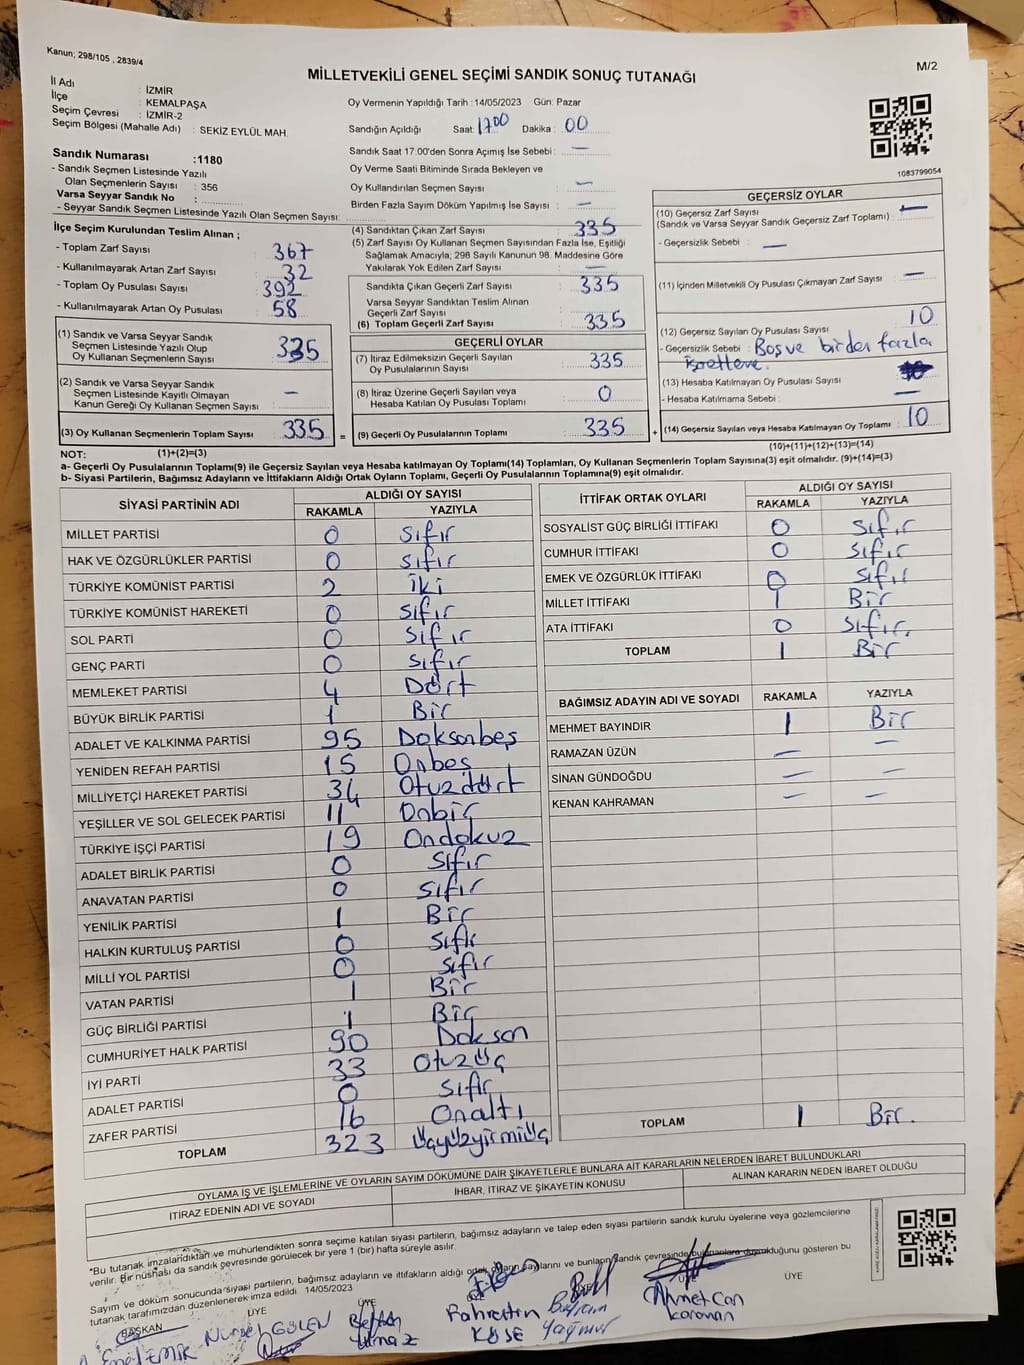 Kanun; 298/105 , 2839/4
M/2
MİLLETVEKİLİ GENEL SEÇİMİ SANDIK SONUÇ TUTANAĞI
İl Adı : İZMİR
İlçe : KEMALPAŞA
Seçim Çevresi : İZMİR-2
Seçim Bölgesi (Mahalle Adı) : SEKİZ EYLÜL MAH.
Oy Vermenin Yapıldığı Tarih : 14/05/2023 Gün: Pazar
Sandığın Açıldığı Saat: 17.00 Dakika : 00
Sandık Saat 17:00'den Sonra Açımış İse Sebebi : —
Oy Verme Saati Bitiminde Sırada Bekleyen ve
Oy Kullandırılan Seçmen Sayısı : —
Birden Fazla Sayım Döküm Yapılmış İse Sayısı : —
1083799054
Sandık Numarası :1180
- Sandık Seçmen Listesinde Yazılı
Olan Seçmenlerin Sayısı : 356
Varsa Seyyar Sandık No :
- Seyyar Sandık Seçmen Listesinde Yazılı Olan Seçmen Sayısı:
İlçe Seçim Kurulundan Teslim Alınan ;
- Toplam Zarf Sayısı 367
- Kullanılmayarak Artan Zarf Sayısı : 32
- Toplam Oy Pusulası Sayısı : 392
- Kullanılmayarak Artan Oy Pusulası : 58
(1) Sandık ve Varsa Seyyar Sandık
Seçmen Listesinde Yazılı Olup
Oy Kullanan Seçmenlerin Sayısı : 335
(2) Sandık ve Varsa Seyyar Sandık
Seçmen Listesinde Kayıtlı Olmayan
Kanun Gereği Oy Kullanan Seçmen Sayısı : —
(3) Oy Kullanan Seçmenlerin Toplam Sayısı : 335 =
(4) Sandıktan Çıkan Zarf Sayısı : 335
(5) Zarf Sayısı Oy Kullanan Seçmen Sayısından Fazla İse, Eşitliği
Sağlamak Amacıyla; 298 Sayılı Kanunun 98. Maddesine Göre
Yakılarak Yok Edilen Zarf Sayısı : —
Sandıkta Çıkan Geçerli Zarf Sayısı : 335
Varsa Seyyar Sandıktan Teslim Alınan
Geçerli Zarf Sayısı :
(6) Toplam Geçerli Zarf Sayısı : 335
GEÇERLİ OYLAR
(7) İtiraz Edilmeksizin Geçerli Sayılan
Oy Pusulalarının Sayısı : 335
(8) İtiraz Üzerine Geçerli Sayılan veya
Hesaba Katılan Oy Pusulası Toplamı : 0
(9) Geçerli Oy Pusulalarının Toplamı : 335 +
GEÇERSİZ OYLAR
(10) Geçersiz Zarf Sayısı
(Sandık ve Varsa Seyyar Sandık Geçersiz Zarf Toplamı) : —
- Geçersizlik Sebebi : —
(11) İçinden Milletvekili Oy Pusulası Çıkmayan Zarf Sayısı : —
(12) Geçersiz Sayılan Oy Pusulası Sayısı : 10
- Geçersizlik Sebebi : Boş ve birden fazla
(13) Hesaba Katılmayan Oy Pusulası Sayısı :
- Hesaba Katılmama Sebebi : —
(14) Geçersiz Sayılan veya Hesaba Katılmayan Oy Toplamı : 10
NOT: (1)+(2)=(3) (10)+(11)+(12)+(13)=(14)
a- Geçerli Oy Pusulalarının Toplamı(9) ile Geçersiz Sayılan veya Hesaba katılmayan Oy Toplamı(14) Toplamları, Oy Kullanan Seçmenlerin Toplam Sayısına(3) eşit olmalıdır. (9)+(14)=(3)
b- Siyasi Partilerin, Bağımsız Adayların ve İttifakların Aldığı Ortak Oyların Toplamı, Geçerli Oy Pusulalarının Toplamına(9) eşit olmalıdır.
SİYASİ PARTİNİN ADI ALDIĞI OY SAYISI
RAKAMLA YAZIYLA
MİLLET PARTİSİ 0 Sıfır
HAK VE ÖZGÜRLÜKLER PARTİSİ 0 Sıfır
TÜRKİYE KOMÜNİST PARTİSİ 2 İki
TÜRKİYE KOMÜNİST HAREKETİ 0 Sıfır
SOL PARTİ 0 Sıfır
GENÇ PARTİ 0 Sıfır
MEMLEKET PARTİSİ 4 Dört
BÜYÜK BİRLİK PARTİSİ 1 Bir
ADALET VE KALKINMA PARTİSİ 95 Doksanbeş
YENİDEN REFAH PARTİSİ 15 Onbeş
MİLLİYETÇİ HAREKET PARTİSİ 34 Otuzdört
YEŞİLLER VE SOL GELECEK PARTİSİ 11 Onbir
TÜRKİYE İŞÇİ PARTİSİ 19 Ondokuz
ADALET BİRLİK PARTİSİ 0 Sıfır
ANAVATAN PARTİSİ 0 Sıfır
YENİLİK PARTİSİ 1 Bir
HALKIN KURTULUŞ PARTİSİ 0 Sıfır
MİLLİ YOL PARTİSİ 0 Sıfır
VATAN PARTİSİ 1 Bir
GÜÇ BİRLİĞİ PARTİSİ 1 Bir
CUMHURİYET HALK PARTİSİ 90 Doksan
İYİ PARTİ 33 Otuzüç
ADALET PARTİSİ 0 Sıfır
ZAFER PARTİSİ 16 Onaltı
TOPLAM 323 Üçyüzyirmiüç
İTTİFAK ORTAK OYLARI ALDIĞI OY SAYISI
RAKAMLA YAZIYLA
SOSYALİST GÜÇ BİRLİĞİ İTTİFAKI 0 Sıfır
CUMHUR İTTİFAKI 0 Sıfır
EMEK VE ÖZGÜRLÜK İTTİFAKI 0 Sıfır
MİLLET İTTİFAKI 1 Bir
ATA İTTİFAKI 0 Sıfır.
TOPLAM 1 Bir
BAĞIMSIZ ADAYIN ADI VE SOYADI RAKAMLA YAZIYLA
MEHMET BAYINDIR 1 Bir
RAMAZAN ÜZÜN — —
SİNAN GÜNDOĞDU — —
KENAN KAHRAMAN — —
TOPLAM 1 Bir.
OYLAMA İŞ VE İŞLEMLERİNE VE OYLARIN SAYIM DÖKÜMÜNE DAİR ŞİKAYETLERLE BUNLARA AİT KARARLARIN NELERDEN İBARET BULUNDUKLARI
İTİRAZ EDENİN ADI VE SOYADI İHBAR, İTİRAZ VE ŞİKAYETİN KONUSU ALINAN KARARIN NEDEN İBARET OLDUĞU
"Bu tutanak imzalandıktan ve mühürlendikten sonra seçime katılan siyasi partilerin, bağımsız adayların ve talep eden siyasi partilerin sandık kurulu üyelerine veya gözlemcilerine
verilir. Bir nüshası da sandık çevresinde görülecek bir yere 1 (bir) hafta süreyle asılır.
Sayım ve döküm sonucunda siyasi partilerin, bağımsız adayların ve ittifakların aldığı ortak oyların sayılarını ve bunların sandık çevresinde
tutanak tarafımızdan düzenlenerek imza edildi 14/05/2023
BAŞKAN ÜYE ÜYE ÜYE
Nursel GÜLEN
Fahrettin KÖSE
Bayram Yağmur
Ahmet Can